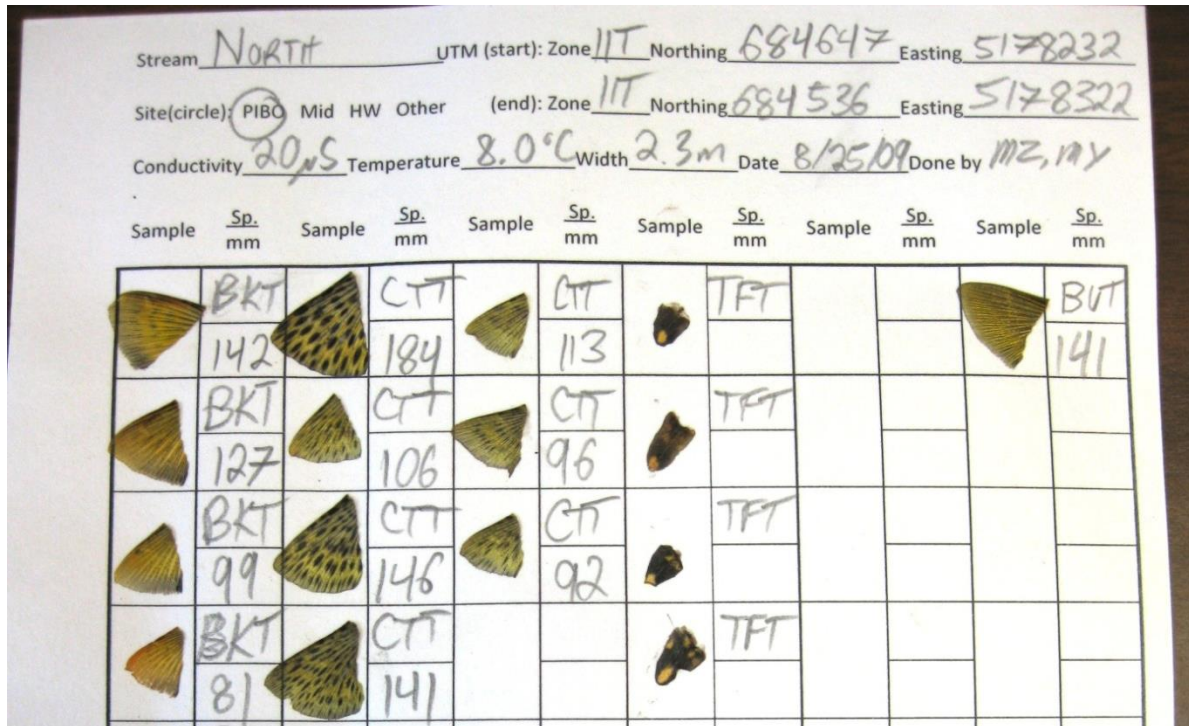 Stream NORTH UTM (start): Zone 11T Northing 684647 Easting 5178232
Site(circle): PIBO Mid HW Other (end): Zone 11T Northing 684536 Easting 5178322
Conductivity 20µS Temperature 8.0°C Width 2.3m Date 8/25/09 Done by MZ, MY
Sample Sp. mm Sample Sp. mm Sample Sp. mm Sample Sp. mm Sample Sp. mm Sample Sp. mm
BKT CTT CTT TFT BUT
142 184 113 141
BKT CTT CTT TFT
127 106 96
BKT CTT CTT TFT
99 146 92
BKT CTT TFT
81 141